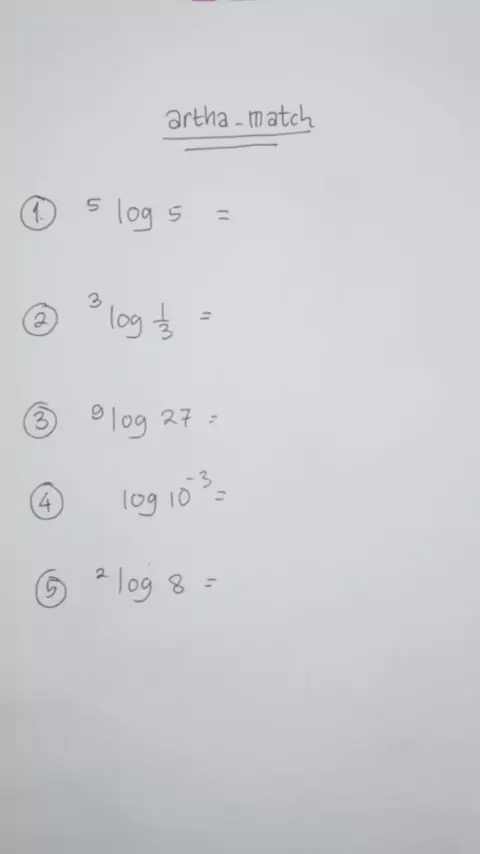 artha-match
① ⁵log 5 =
② ³log 1/3 =
③ ⁹log 27 =
④ log 10⁻³ =
⑤ ²log 8 =